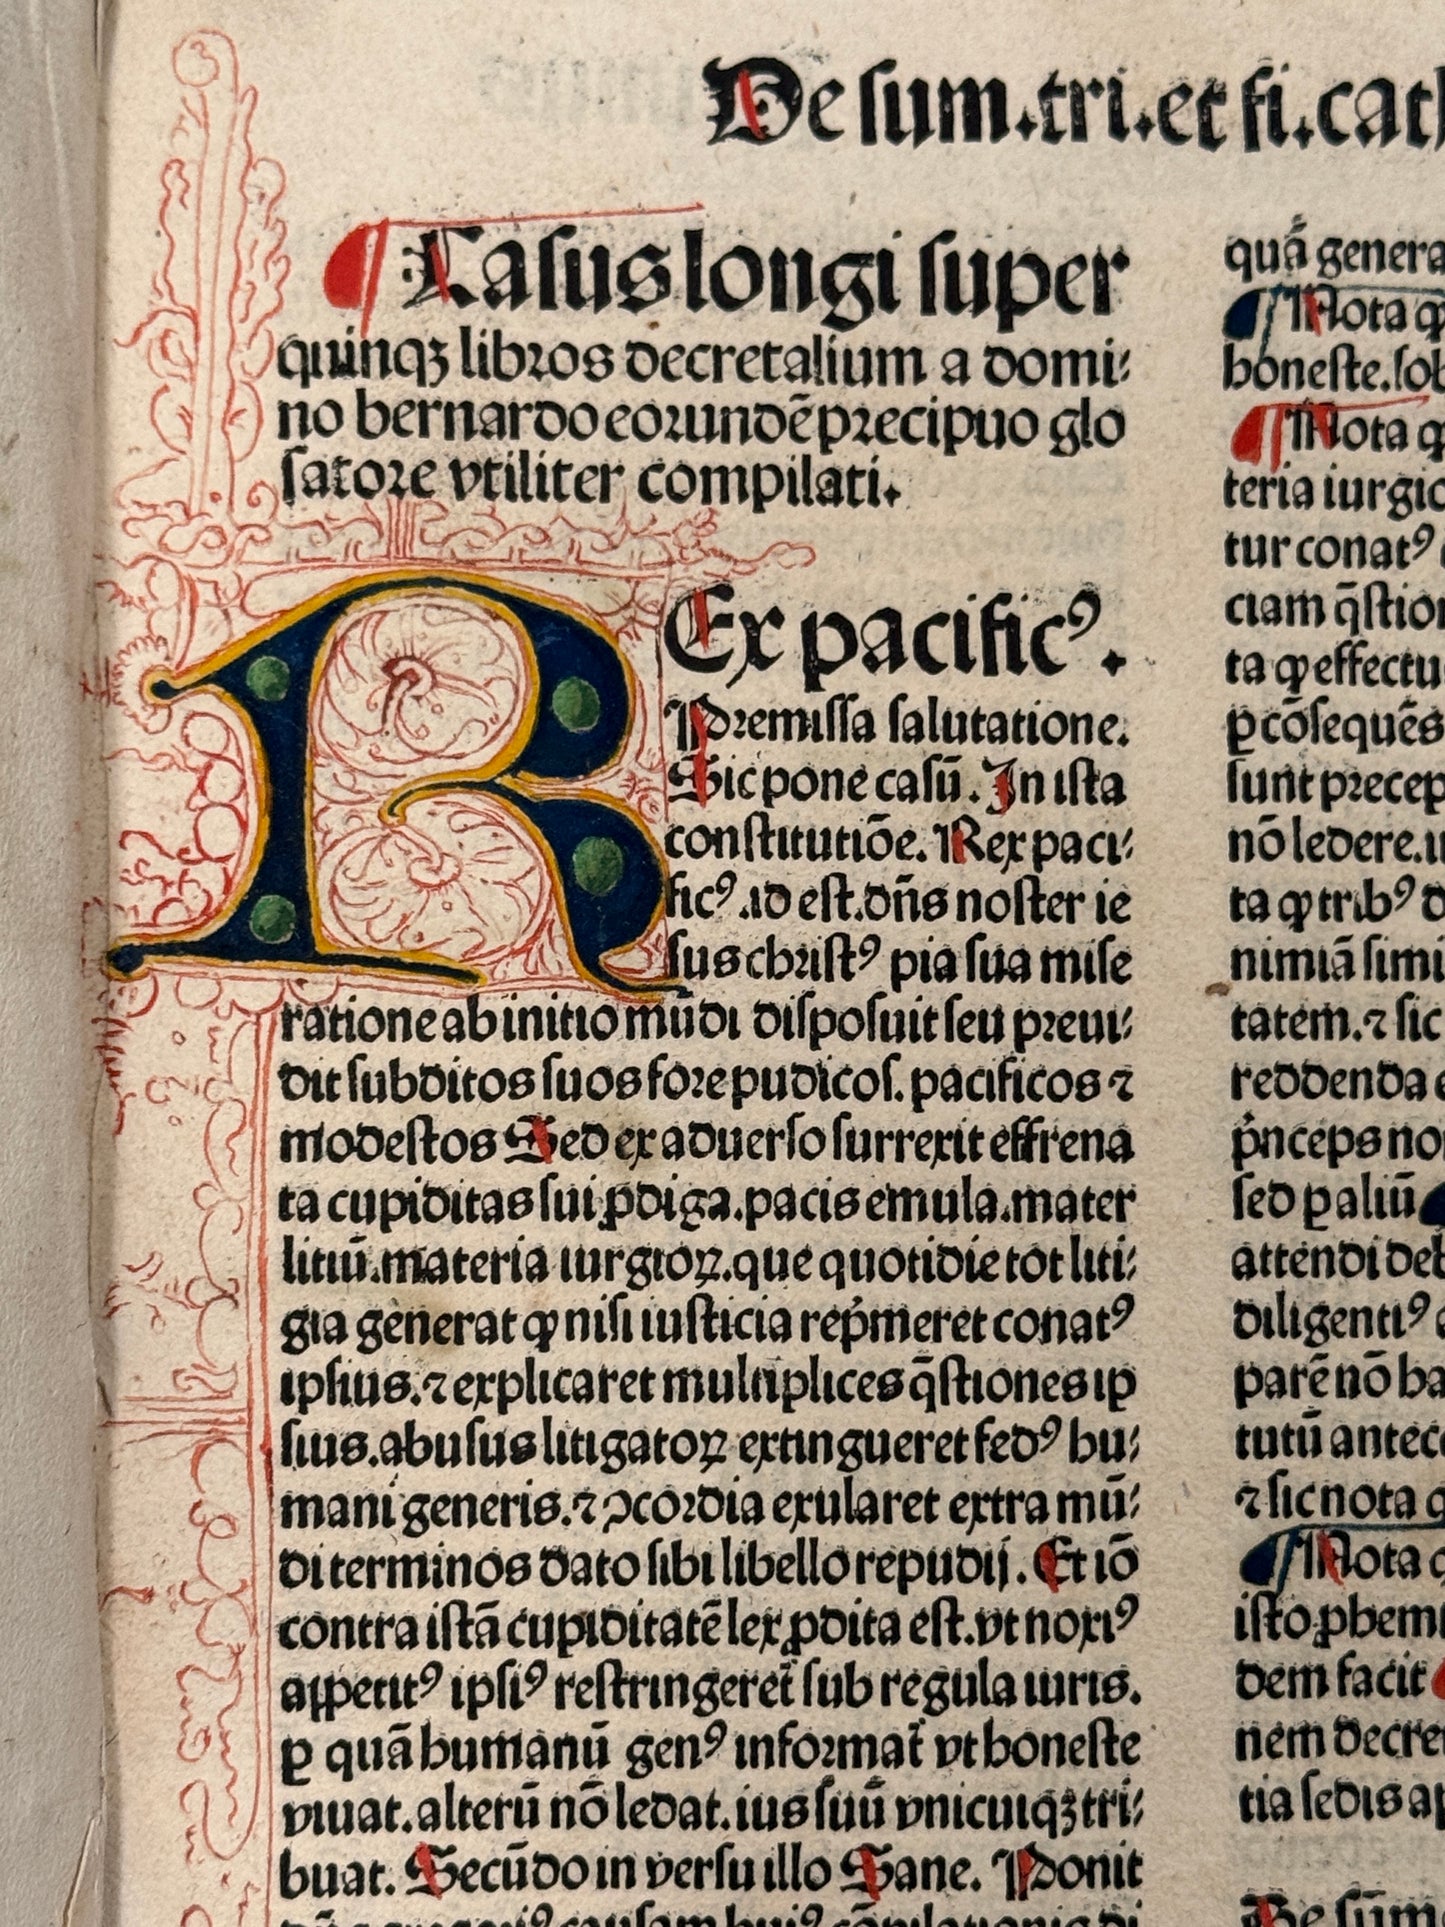 De sum.tri.et fi.cath
¶ Casus longi super
quinqꝫ libꝛos decretalium a domi⸗
no bernardo eoꝛundē pꝛecipuo glo
ſatoꝛe vtiliter compilati.
REx pacificꝰ.
Pꝛemiſſa ſalutatione.
Sic pone caſū. In iſta
conſtitutiōe. Rex paci⸗
ficꝰ .id eſt.dn̄s noſter ie
ſus chꝛiſtꝰ pia ſua miſe
ratione ab initio mūdi diſpoſuit ſeu pꝛeui⸗
dit ſubditos ſuos foꝛe pudicoſ. pacificos ⁊
modeſtos Sed ex aduerſo ſurrexit effrena
ta cupiditas ſui ꝓdiga.pacis emula.mater
litiū.materia iurgioꝝ.que quotidie tot liti⸗
gia generat ꝙ niſi iuſticia rep̍meret conatꝰ
ipſius.⁊ explicaret multiplices q̄ſtiones ip
ſius.abuſus litigatoꝝ extingueret fedꝰ hu⸗
mani generis.⁊ ↄcoꝛdia exularet extra mū⸗
di terminos dato ſibi libello repudij. Et iō
contra iſtā cupiditatē lex ꝓdita eſt.vt noxiꝰ
appetitꝰ ipſiꝰ reſtringeret̄ ſub regula iuris.
ꝑ quā humanū genꝰ infoꝛmat̄ vt honeſte
viuat.alterū nō ledat.ius ſuū vnicuiqꝫ tri⸗
buat. Secūdo in verſu illo Sane. Ponit
quā genera
¶ Nota ꝙ
honeſte.
¶ Nota ꝙ
teria iurgio
tur conatꝰ
ciam q̄ſtion
ta ꝙ effectu
ꝑ cōſequēs
ſunt pꝛecep
nō ledere.
ta ꝙ tribꝰ d
nimiā ſimi
tatem.⁊ ſic
reddenda
p̍nceps no
ſed ꝑ aliū
attendi deb
diligentiꝰ
parē nō ba
tutū antece
⁊ ſic nota
¶ Nota
iſto ꝓhem
dem facit
nem decre
tia ſedis ap
De ſūm